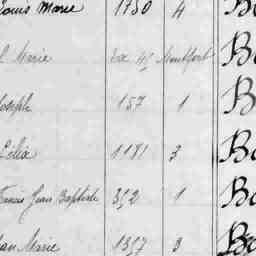 Louis Marie 1750 4 B
Marie Montfort B
Joseph 157 1 B
Célia 1181 3 Ba
Francis Jean Baptiste 392 1 Ba
Jean Marie 1357 3 Ba